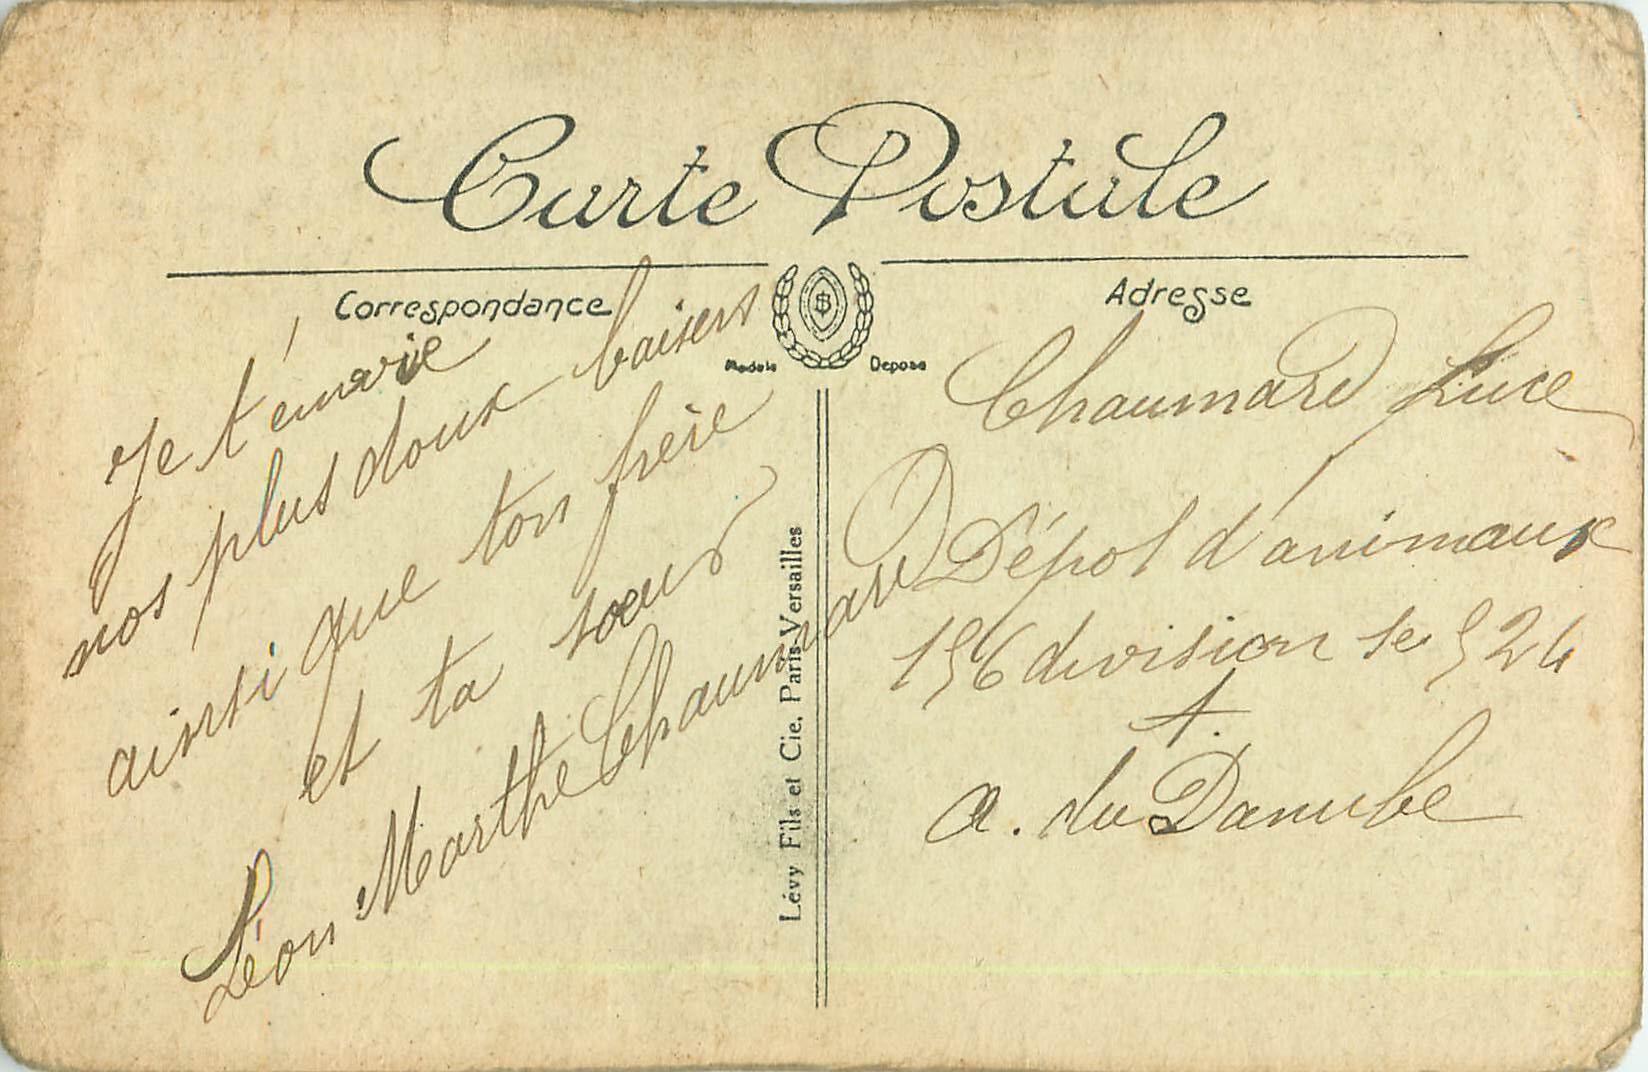 Carte Postale
Correspondance
Adresse
Modèle Déposé
Je t'envoie
nos plus doux baisers
ainsi que ton frère
et ta sœur
Léon Marthe Chaumard
Lévy Fils et Cie. Paris-Versailles
Chaumard Luce
Dépot d'animaux
156 division se 524
A.
a. du Danube